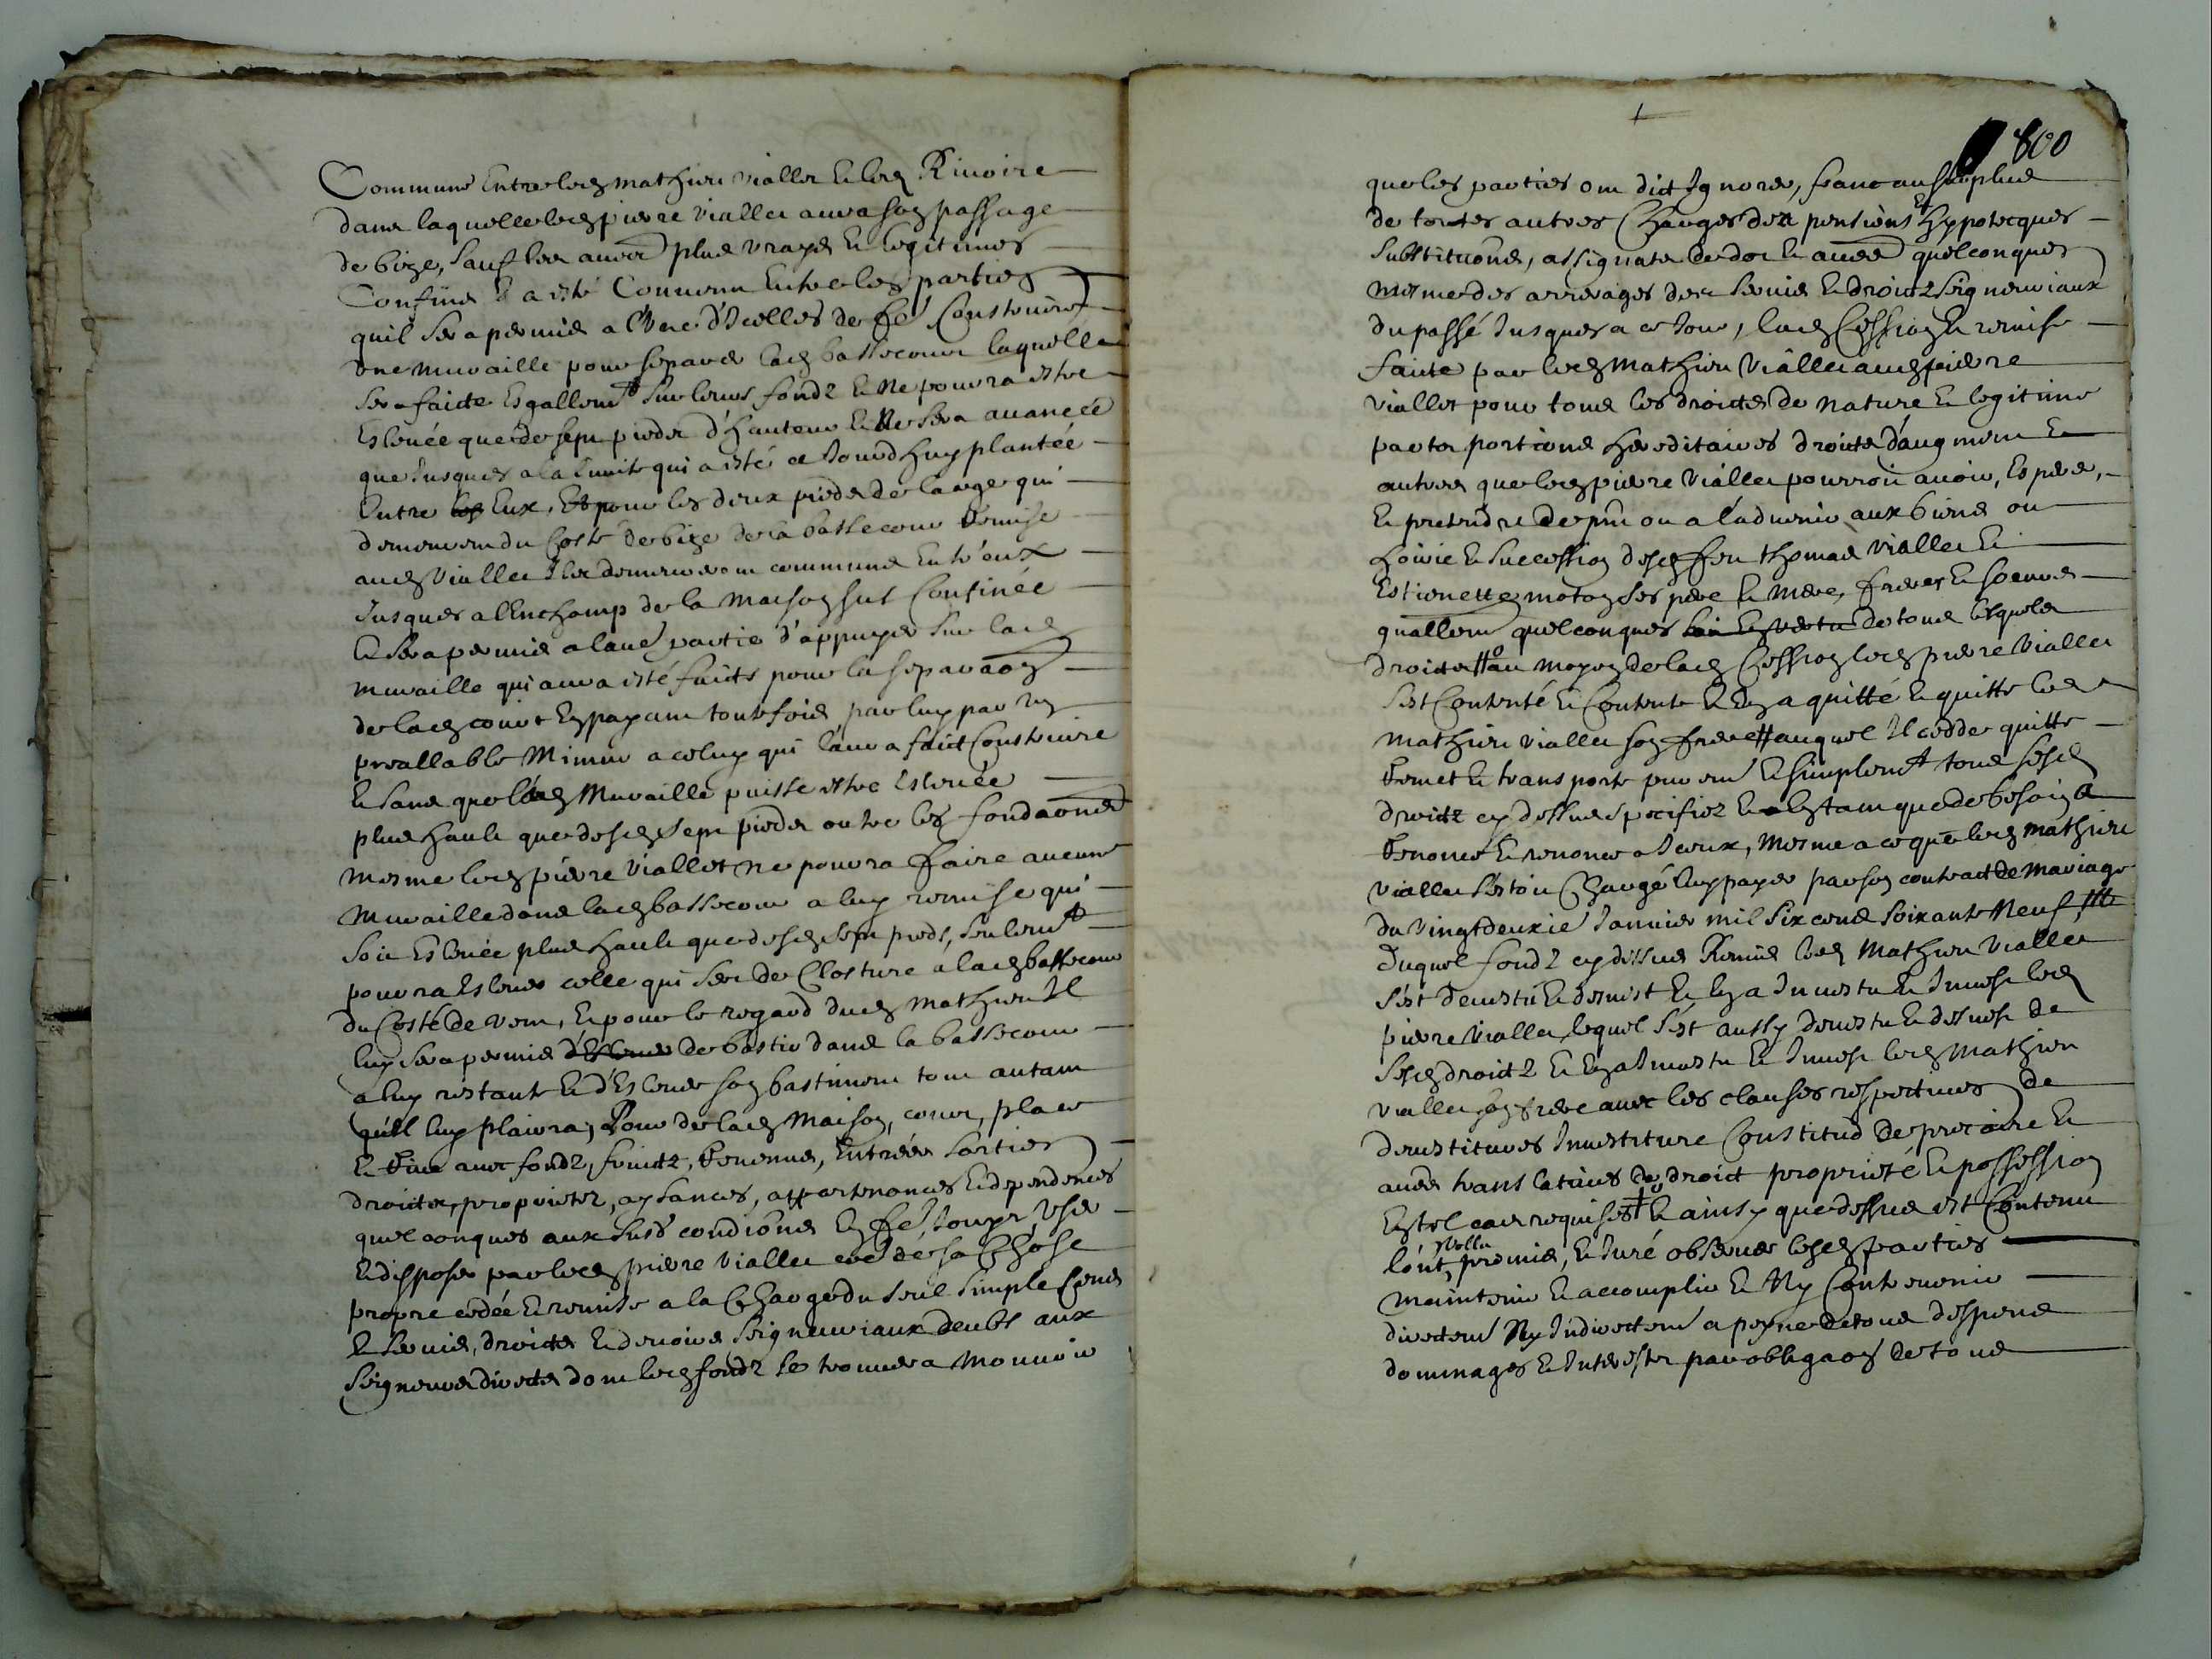 Commune Entre led mathieu viallet & led Rivoire
dans laquelle led pierre viallet aura son passage
de bize, sauf les autres plus vrayes & legitimes
Confins Et a esté Convenu Entre les parties
quil sera permis a l'une d'Icelles de fe Construire
une muraille pour separer lad bassecour laquelle
sera faicte Esgallemt sur leurs fondz & Ne pourra estre
Eslevée que de sept piedz d'hauteur & Ne sera avancée
que Jusques a la limite qui a esté ce Jourdhuy plantée
Entre les Eux, Et pour les deux piedz de large qui
demeurent du Costé de bize de la bassecour Remise
aud viallet Ils demeureront communs Entr'eux
Jusques a l'Enchamp de la maison sus Confinée
& sera permis a laue partie d'appuyer sur lad
muraille qui aura esté faicte pour la separaon
de lad cour & payant toutefois par luy par un
preallable Mimur a celuy qui l'aura faict Construire
& sans que lad Muraille puisse estre Eslevée
plus haute que desd sept piedz outre les fondaons
mesme led pierre viallet ne pourra faire aucune
muraille dans lad bassecour a luy remise qui
soit Eslevée plus haute que desd sept piedz, seulemt
pourra Eslever celle qui sert de Closture a lad bassecour
du Costé de vent, Et pour le regard dud mathieu Il
luy sera permis d'Eslever de bastir dans la bassecour
a luy restante & d'Eslever son bastiment tout autant
quil luy plaira, Pour de lad maison, cour, place
& avec fondz, fruictz, Revenus, Entrées sorties
droictz, proprietez, aysances, appartenances & dependences
quelconques aux susd condiôns En fe Jouyr, user
& disposer par led pierre viallet de sa Chose
propre cedée & remise a la Charge du seul simple Cens
& servis, droictz & devoirs seigneuriaux deubs aux
seigneurs directz dont led fondz se trouvera mouvoir
800
que les parties ont dict Ignorer, franc au surplus
de toutes autres Charges pensions Et hypotecques
substituôns, assignats de dot & autres quelconques
mesme des arrerages des servis & droictz seigneuriaux
du passé Jusques a ce Jour, lad Cession & remise
faicte par led Mathieu Viallet aud pierre
viallet pour tous les droictz de nature & legitime
parts portions hereditaires droictz d'augment &
autres que led pierre Viallet pourroit avoir, Esperer,
& pretendre de pnt ou a l'advenir aux biens ou
hoirie & succession desd feu thomas viallet &
Estiennette moton ses pere & mere, freres & soeurs
gnallemt quelconques de tous lesquels
droictz au moyen de lad Cession led pierre viallet
s'est Contenté & Contente & En a quitté & quitte led
Mathieu viallet son frere auquel Il cedde quitte
Remet & transporte puremt & simplemt tous sesd
droictz cy dessus specifiez & En tant que de besoing a
Renoncé & renonce a Iceux, mesme a ce que led mathieu
viallet s'estoit Chargé luy payer par son contract de mariage
du vingtdeuxie Janvier mil six cens soixante Neuf
Duquel fondz cy dessus Remis led Mathieu Viallet
s'est devestu & desmist & En a Investu & Invest led
pierre Viallet lequel s'est aussy devestu & desvest de
sesd droictz & En a Investu & Invest led Mathieu
viallet son frere avec les clauses respectives de
devestitures Investiture Constitud de precaire &
autres translatives de droict proprieté & possession
En tel cas requises & ainsy que dessus est Contenu
l'ont voullu promis, & Juré observer lesd parties
maintenir & accomplir & Ny Contrevenir
directemt Ny Indirectemt a peyne de tous despens
dommages & Interestz par obligaon de tous